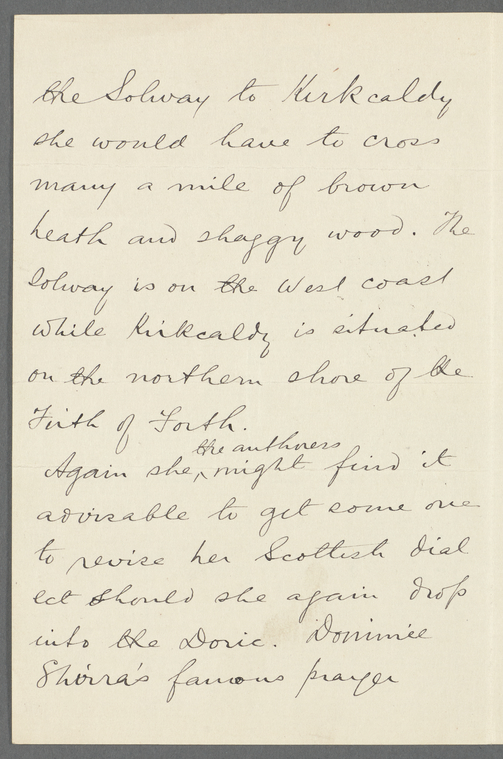 the Solway to Kirkcaldy
she would have to cross
many a mile of brown
heath and shaggy wood. The
Solway is on the West coast
while Kirkcaldy is situated
on the northern shore of the
Firth of Forth.
the authoress
Again she, ^ might find it
advisable to get some one
to revise her Scottish dial
ect should she again drop
into the Doric. Dominie
Shirra's famous prayer